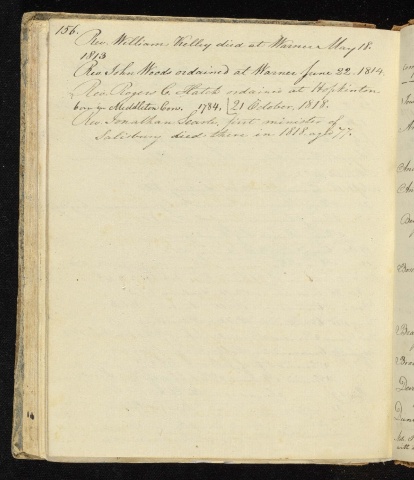 156.
Rev. William Kelley died at Warner May 18.
1813
Rev John Woods ordained at Warner June 22. 1814.
Rev. Rogers C. Hatch ordained at Hopkinton
born in Middleton Con. 1784. [21 October. 1818.
Rev Jonathan Searle, first minister of
Salisbury died there in 1818. aged 77.